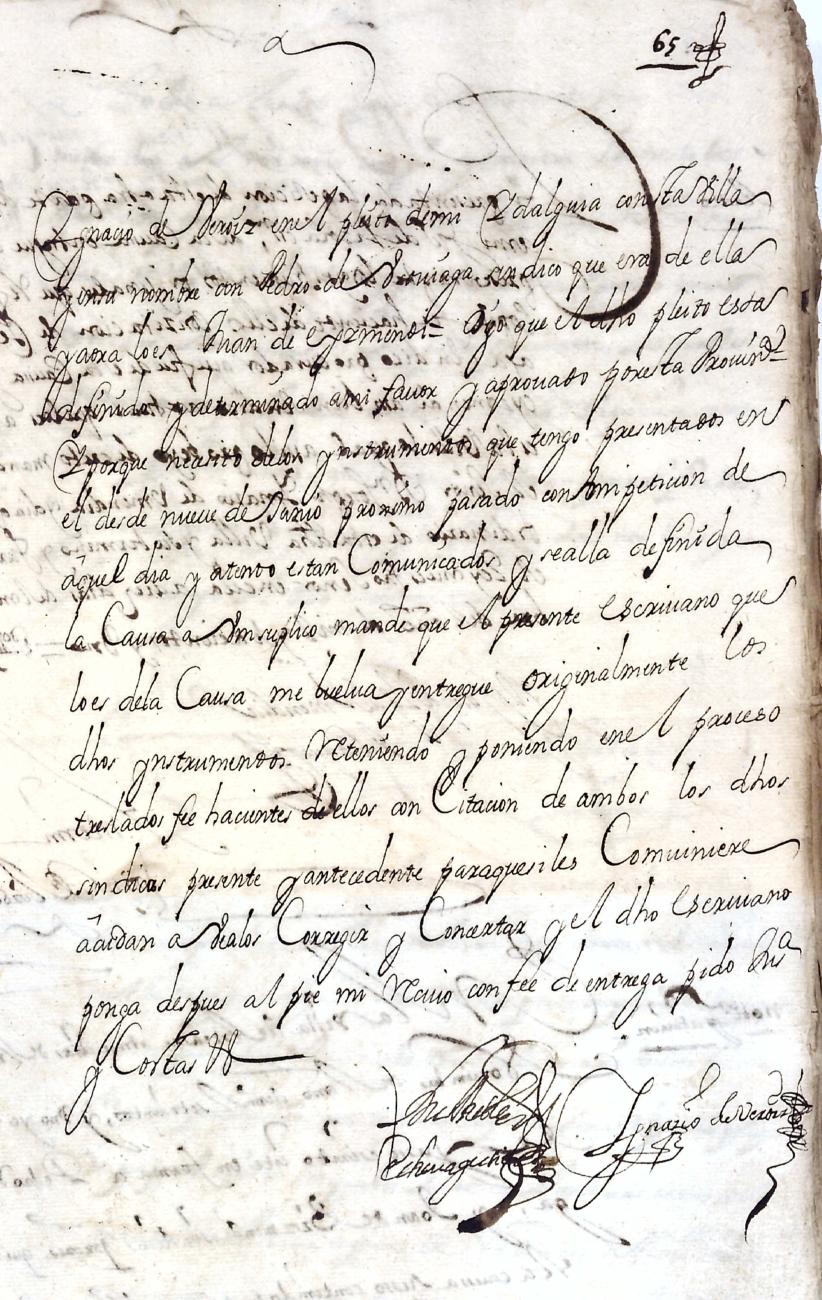 65
Ygnacio de Veroiz en el pleito de mi Ydalguia con esta Villa
y en su nombre con Pedro de sindico que era de ella
y aora lo es Juan de Eyzmendi = Digo que el dho pleito esta
definido y determinado a mi favor y aprovado por esta Provinᵃ =
Y porque necesito delos ynstrumentos que tengo presentados en
el desde nueve de Junio proximo pasado con peticion de
aquel dia y atento estan Comunicados y se alla definida
la Causa a Vm suplico mande que el presente Escrivano que
lo es dela Causa me buelva y entregue originalmente los
dhos ynstrumentos Reteniendo y poniendo en el proceso
treslados fee hacientes de ellos con Citacion de ambos los dhos
sindicos presente y antecedente para que si les Comviniere
acudan a verlos Corregir y Concertar y el dho Escrivano
ponga despues al pie mi Recivo con fee de entrega pido Jusᵃ
y Costas
Ygnacio de Veroiz